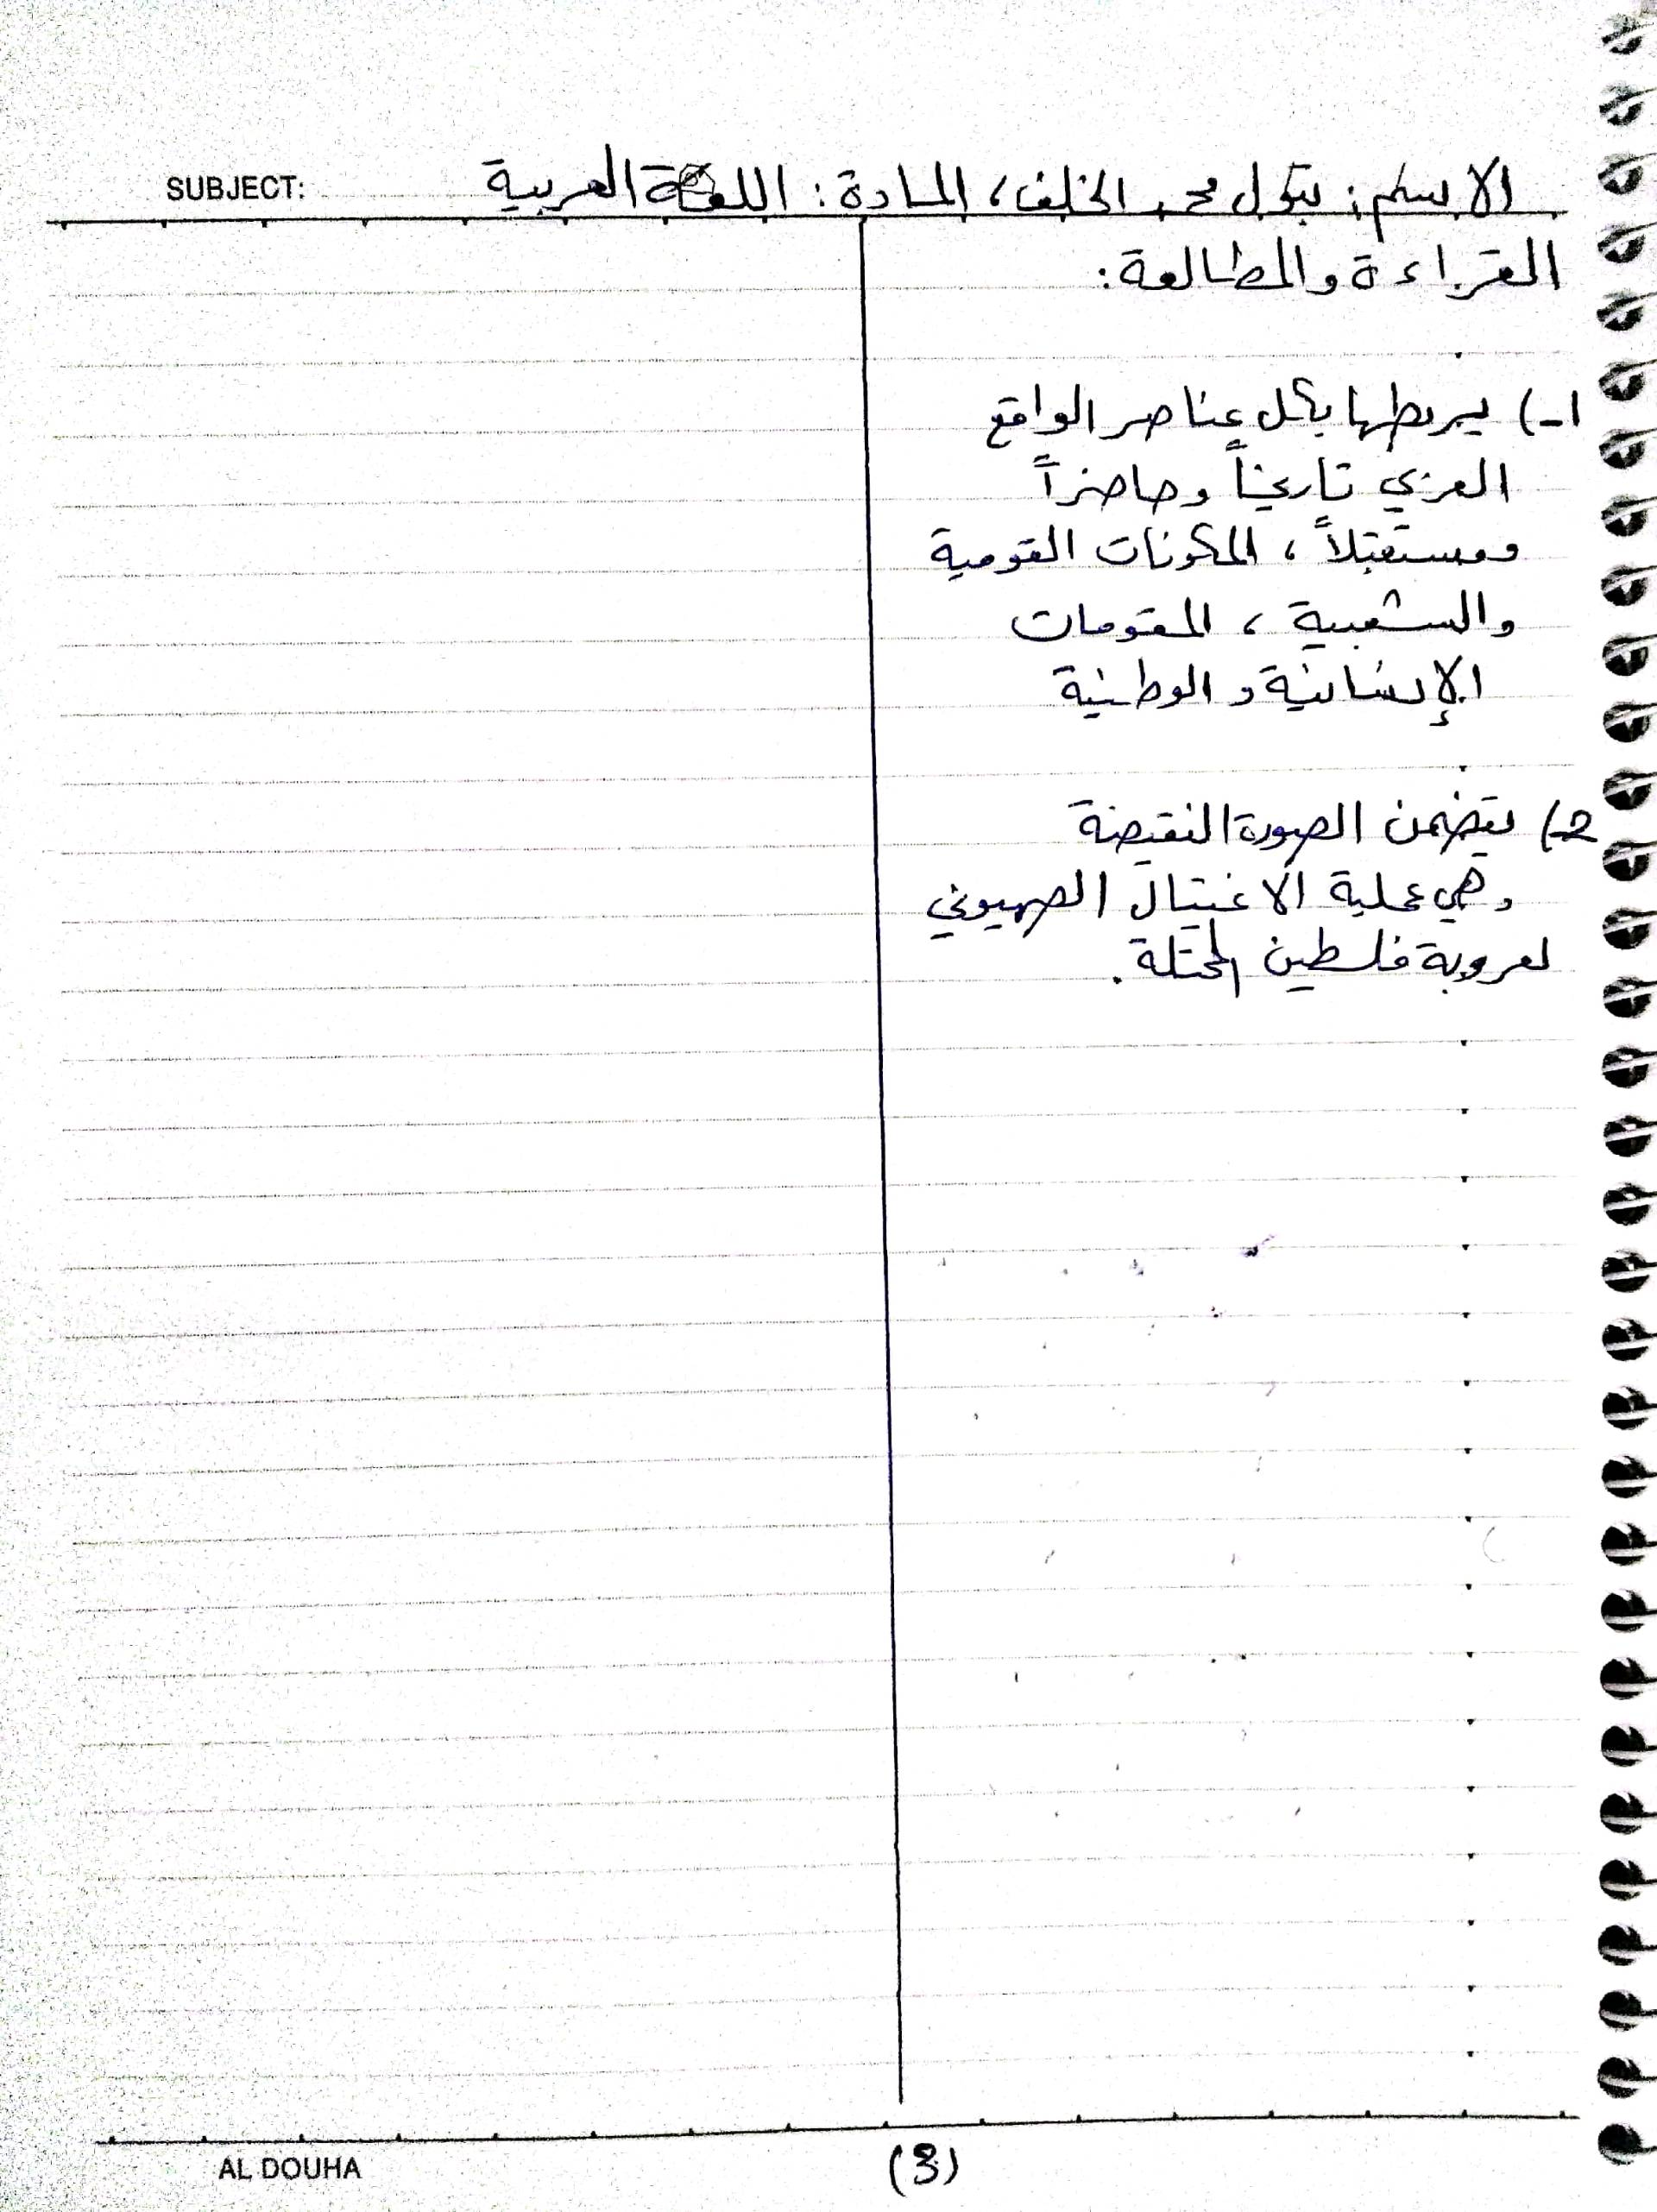 SUBJECT:
الاسم: بتول محمد الخلف، المادة: اللغة العربية
القراءة والمطالعة:
1-) يربطها بكل عناصر الواقع
العربي تاريخاً وحاضراً
ومستقبلاً، المكونات القومية
والشعبية، المقومات
الإنسانية والوطنية
2-) يتضمن الصورة النقيضة
وهي عملية الاغتيال الصهيوني
لعروبة فلسطين المحتلة.
AL DOUHA
(3)